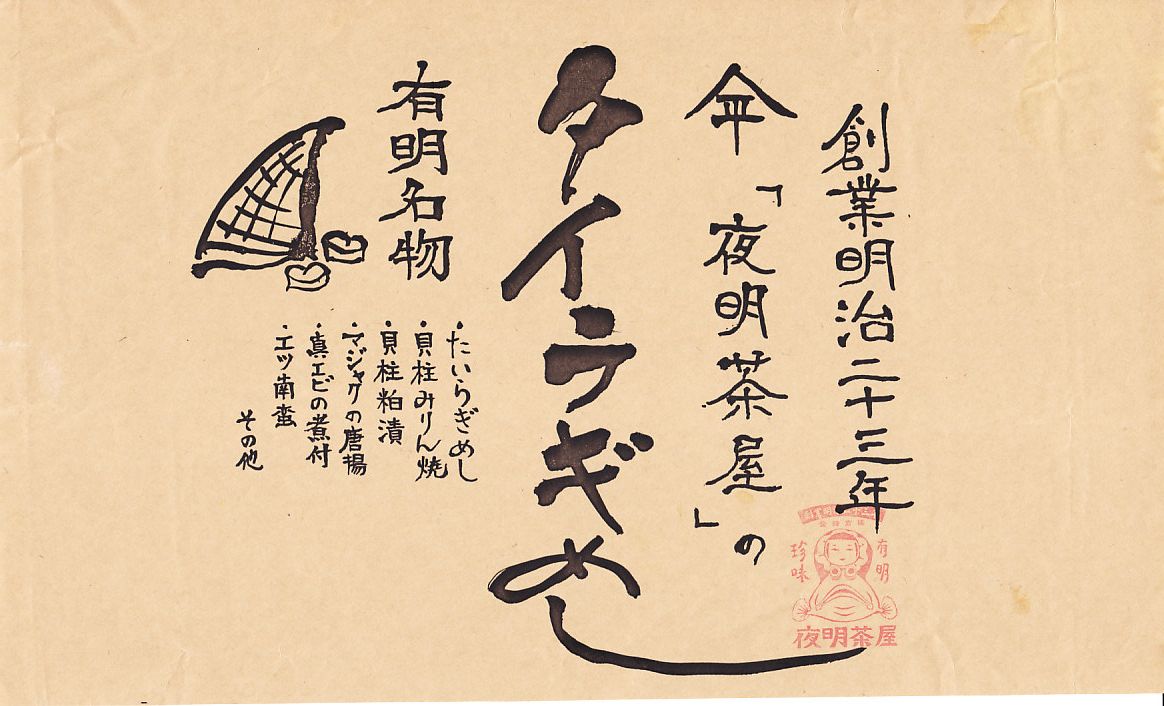 創業明治二十三年
「夜明茶屋」の
タイラギめし
有明名物
・たいらぎめし
・貝柱みりん焼
・貝柱粕漬
・マジャクの唐揚
・真エビの煮付
・エツ南蛮
その他
有明
珍味
夜明茶屋